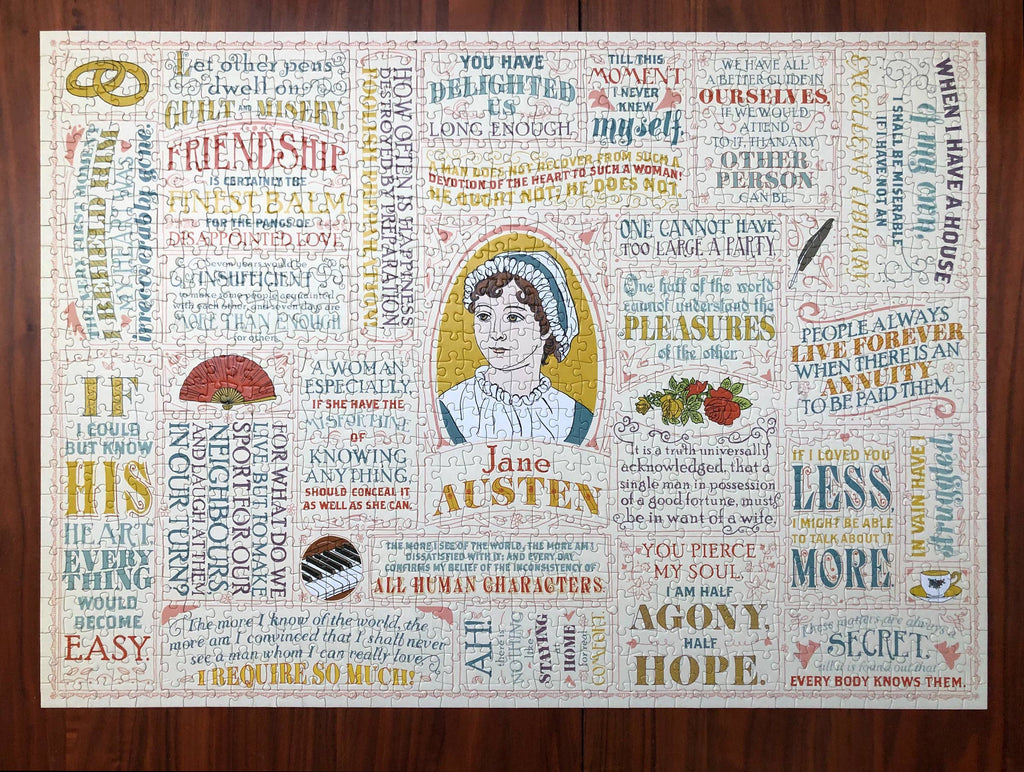 Let other pens
dwell on
GUILT AND MISERY.
FRIENDSHIP
IS CERTAINLY THE
FINEST BALM
FOR THE PANGS OF
DISAPPOINTED LOVE.
HOW OFTEN IS HAPPINESS
DESTROYED BY PREPARATION
FOOLISH PREPARATION!
YOU HAVE
DELIGHTED
US
LONG ENOUGH.
TILL THIS
MOMENT
I NEVER
KNEW
myself.
WE HAVE ALL
A BETTER GUIDE IN
OURSELVES,
IF WE WOULD
ATTEND
TO IT, THAN ANY
OTHER
PERSON
CAN BE.
WHEN I HAVE A HOUSE
of my own,
I SHALL BE MISERABLE
IF I HAVE NOT AN
EXCELLENT LIBRARY.
THE VERY FIRST MOMENT
I BEHELD HIM
MY HEART WAS
irrevocably gone.
A MAN DOES NOT RECOVER FROM SUCH A
DEVOTION OF THE HEART TO SUCH A WOMAN!
HE OUGHT NOT; HE DOES NOT.
Seven years would be
INSUFFICIENT
to make some people acquainted
with each other, and seven days are
MORE THAN ENOUGH
for others.
ONE CANNOT HAVE
TOO LARGE A PARTY.
One half of the world
cannot understand the
PLEASURES
of the other.
PEOPLE ALWAYS
LIVE FOREVER
WHEN THERE IS AN
ANNUITY
TO BE PAID THEM.
IF
I COULD
BUT KNOW
HIS
HEART,
EVERY
THING
WOULD
BECOME
EASY.
FOR WHAT DO WE
LIVE, BUT TO MAKE
SPORT FOR OUR
NEIGHBOURS
AND LAUGH AT THEM
IN OUR TURN?
A WOMAN
ESPECIALLY,
IF SHE HAVE THE
MISFORTUNE
OF
KNOWING
ANYTHING,
SHOULD CONCEAL IT
AS WELL AS SHE CAN.
Jane
AUSTEN
It is a truth universally
acknowledged, that a
single man in possession
of a good fortune, must
be in want of a wife.
IF I LOVED YOU
LESS,
I MIGHT BE ABLE
TO TALK ABOUT IT
MORE
IN VAIN HAVE I
struggled.
THE MORE I SEE OF THE WORLD, THE MORE AM I
DISSATISFIED WITH IT; AND EVERY DAY
CONFIRMS MY BELIEF OF THE INCONSISTENCY OF
ALL HUMAN CHARACTERS.
YOU PIERCE
MY SOUL.
I AM HALF
AGONY,
HALF
HOPE.
The more I know of the world, the
more am I convinced that I shall never
see a man whom I can really love.
I REQUIRE SO MUCH!
AH!
there is
NOTHING
like
STAYING
at
HOME
for real
COMFORT
These matters are always a
SECRET,
till it is found out that
EVERY BODY KNOWS THEM.